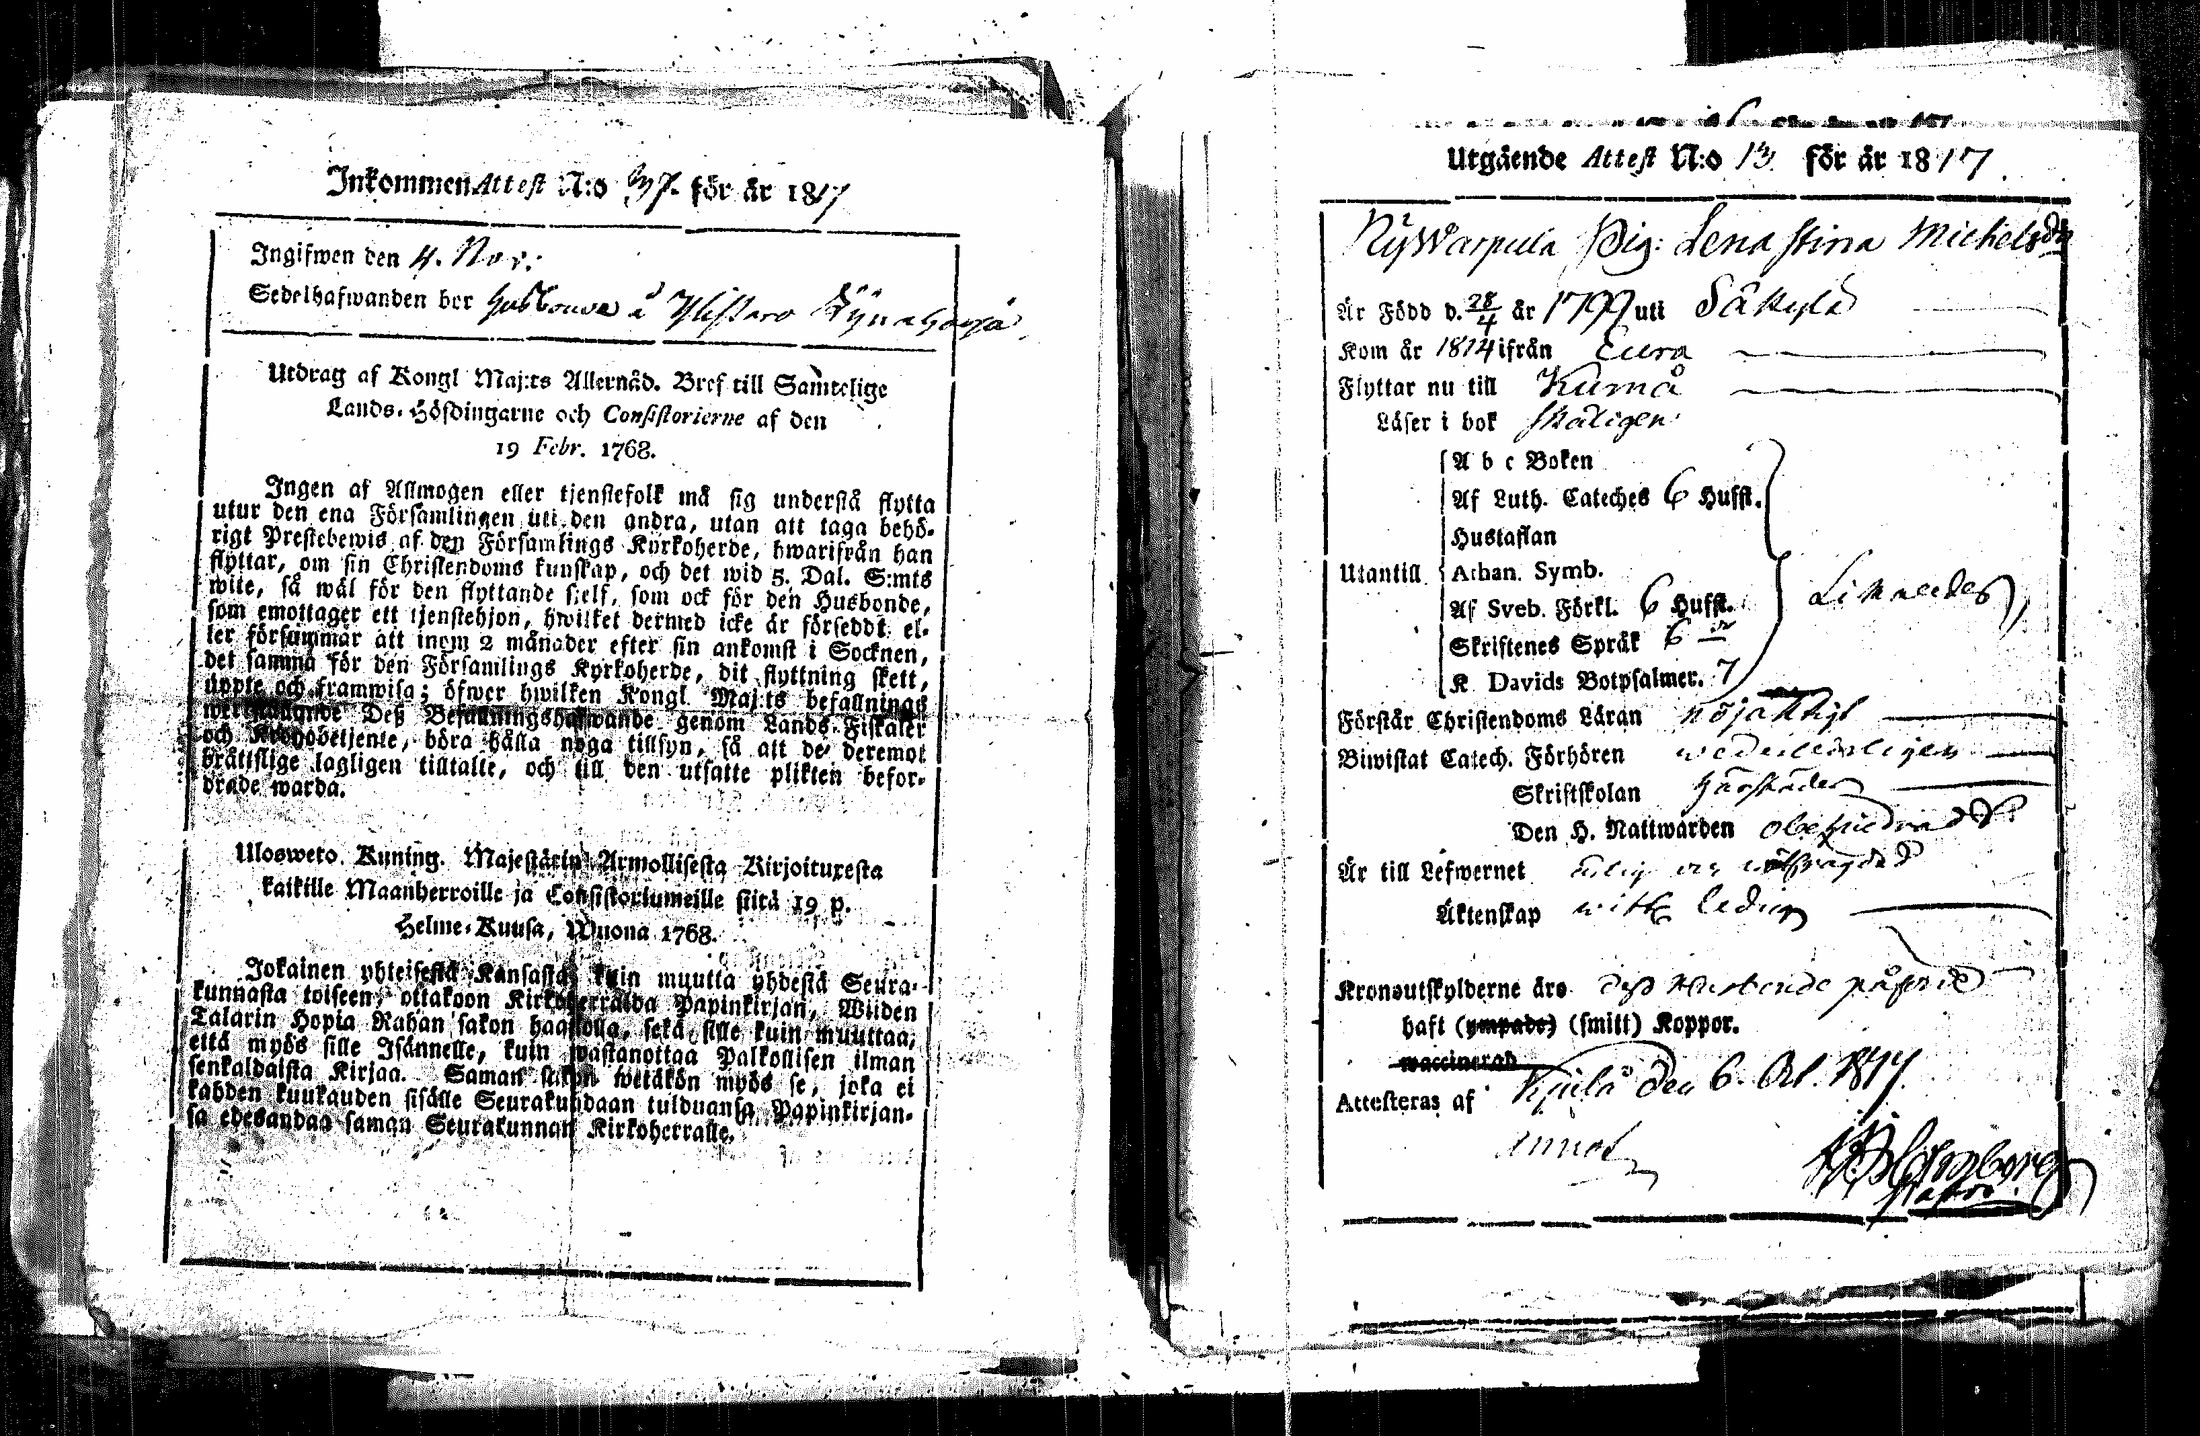 Inkommen Attest N:o 37. för år 1817
Ingifwen den 4. Nov:
Sedelhafwanden bor
Utdrag af Kongl Maj:ts Allernåd. Bref till Samtelige
Lands-Höfdingarne och Consistorierne af den
19 Febr. 1768.
Ingen af Allmogen eller tjenstefolk må sig understå flytta
utur den ena Församlingen uti den andra, utan att taga behö-
rigt Prestebewis af den Församlings Kyrkoherde, hwarifrån han
flyttar, om sin Christendoms kunskap, och det wid 5. Dal. S:mts
wite, så wäl för den flyttande sjelf, som ock för den Husbonde,
som emottager ett tjenstehjon, hwilket dermed icke är försedt el-
ler försummar att inom 2 månader efter sin ankomst i Socknen,
det samma för den Församlings Kyrkoherde, dit flyttning skett,
uppte och framwisa; öfwer hwilken Kongl Maj:ts befallnings
Deß Befallningshafwande genom Lands-Fiskaler
och Kronobetjente, böra hålla noga tillsyn, så att de deremot
bråttslige lagligen tilltalte, och till den utsatte plikten befor-
drade warda.
Ulosweto. Kuning. Majestätin Armollisesta Kirjoituxesta
kaikille Maanherroille ja Consistoriumeille siitä 19 p.
Helme-Kuusa, Wuona 1768.
Jokainen yhteisestä Kansasta, kuin muutta yhdestä Seura-
kunnasta toiseen, ottakoon Kirkoherralda Papinkirjan, Wiiden
Talarin Hopia Rahan sakon haastolla, sekä sille kuin muuttaa,
että myös sille Isännelle, kuin wastanottaa Palkollisen ilman
senkaldaista Kirjaa. Saman sakon wetäkön myös se, joka ei
kahden kuukauden sisälle Seurakundaan tulduansa Papinkirjan-
sa edesandaa saman Seurakunnan Kirkoherralle.
Utgående Attest N:o 13. för år 1817.
Nÿwarpula Pig: Lena Stina Michelsdr
Är Född d. 28/4 år 1799 uti Säkylä
Kom år 1814 ifrån Eura
Flyttar nu till Kumå
Läser i bok skäligen
A b c Boken
Af Luth. Cateches 6 Hufst.
Hustaflan
Utantill Athan. Symb.
Af Sveb. Förkl. 6 Hufst.
Skriftenes Språk 6
K Davids Botpsalmer. 7
Förstår Christendoms Läran nöjaktigt
Biwistat Catech. Förhören wederbörligen
Skriftskolan
Den H. Nattwarden
Är till Lefwernet ärlig och
Äktenskap ledig
Kronoutskylderne äro
haft (ympade) (smitt) Koppor.
waccinerad
Attesteras af Kjulo den 6. Oct. 1817.